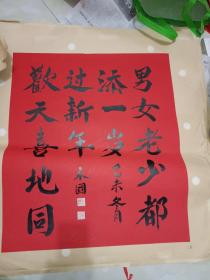 男女老少都
添一岁己未冬月
过新年本国
歡天喜地同